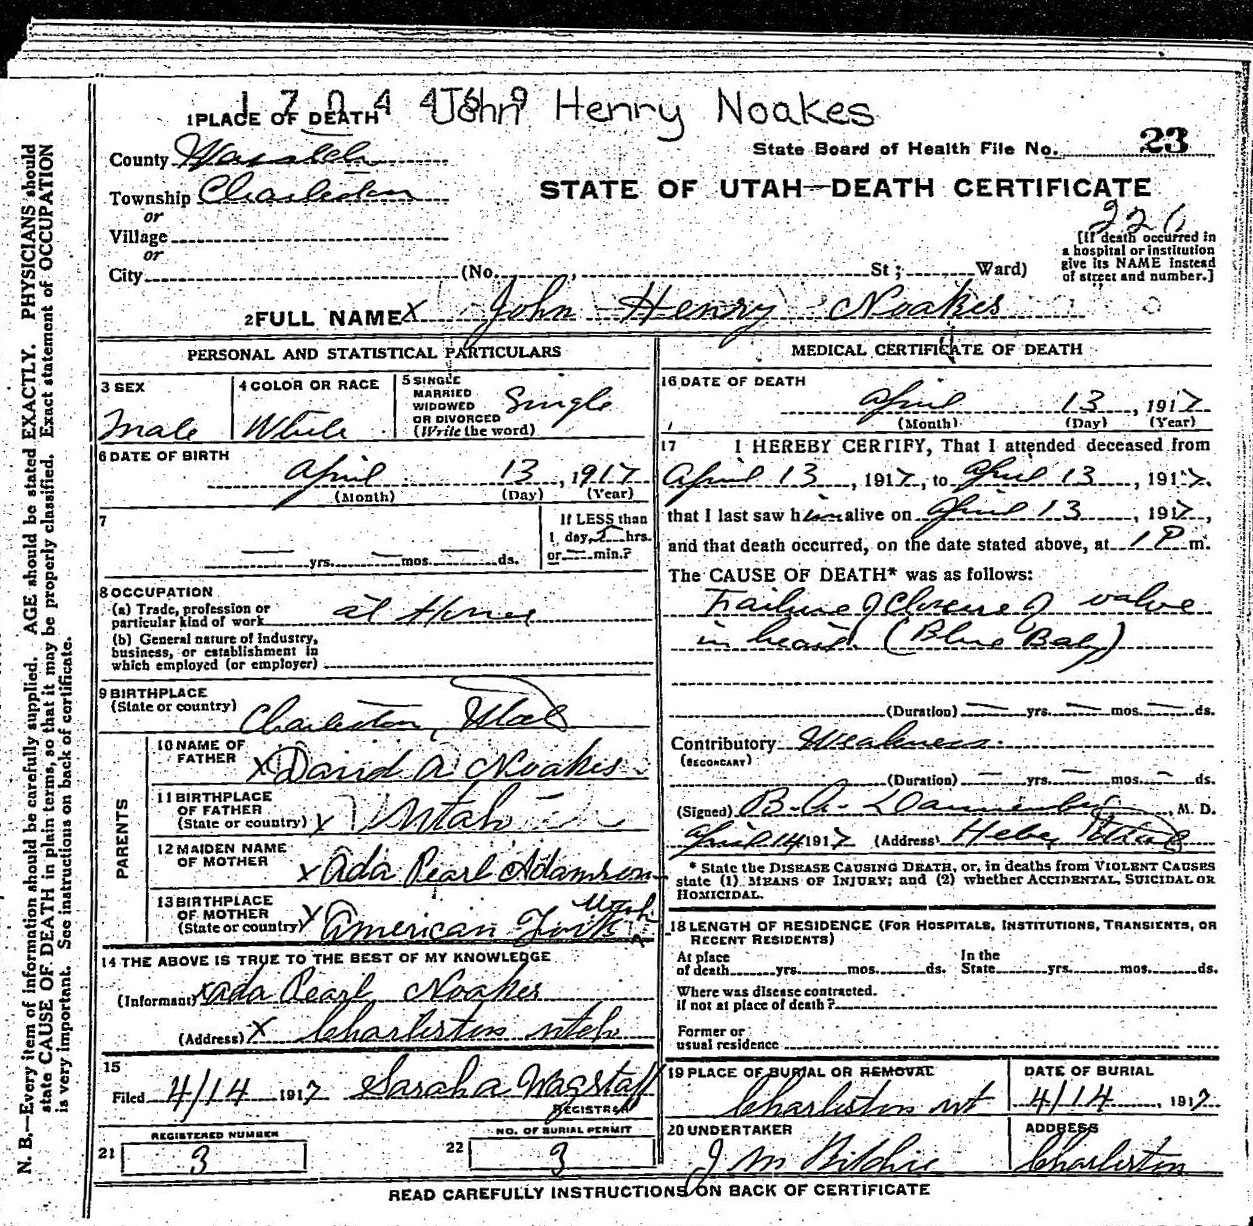 1 7 0 4 4 5 9 John Henry Noakes
1 PLACE OF DEATH
County Wasatch
State Board of Health File No. 23
Township Charleston
STATE OF UTAH—DEATH CERTIFICATE
or
Village
226
or
City (No. , St.; Ward)
[If death occurred in
a hospital or institution
give its NAME instead
of street and number.]
2 FULL NAME x John Henry Noakes
PERSONAL AND STATISTICAL PARTICULARS
3 SEX
Male
4 COLOR OR RACE
White
5 SINGLE
MARRIED
WIDOWED
OR DIVORCED
(Write the word)
Single
6 DATE OF BIRTH
April 13, 1917
(Month) (Day) (Year)
7
— yrs. — mos. — ds.
If LESS than
1 day, 5 hrs.
or — min.?
8 OCCUPATION
(a) Trade, profession or
particular kind of work at Home
(b) General nature of industry,
business, or establishment in
which employed (or employer)
9 BIRTHPLACE
(State or country)
Charleston, Utah
PARENTS
10 NAME OF
FATHER x David A Noakes
11 BIRTHPLACE
OF FATHER
(State or country) x Utah
12 MAIDEN NAME
OF MOTHER x Ada Pearl Adamson
13 BIRTHPLACE
OF MOTHER
(State or country) x American Fork Utah
14 THE ABOVE IS TRUE TO THE BEST OF MY KNOWLEDGE
(Informant) x Ada Pearl Noakes
(Address) x Charleston utah
15
Filed 4/14 1917 Sarah A Wagstaff
REGISTRAR
REGISTERED NUMBER
21 3
NO. OF BURIAL PERMIT
22 3
MEDICAL CERTIFICATE OF DEATH
16 DATE OF DEATH
April 13, 1917
(Month) (Day) (Year)
17 I HEREBY CERTIFY, That I attended deceased from
April 13, 1917, to April 13, 1917.
that I last saw him alive on April 13, 1917,
and that death occurred, on the date stated above, at 1 P m.
The CAUSE OF DEATH* was as follows:
Failure of Closure of valve
in heart. (Blue Baby)
(Duration) — yrs. — mos. — ds.
Contributory Weakness.
(SECONDARY)
(Duration) — yrs. — mos. — ds.
(Signed) B. A. Dannenberg, M. D.
April 14 1917 (Address) Heber Utah
* State the DISEASE CAUSING DEATH, or, in deaths from VIOLENT CAUSES
state (1) MEANS OF INJURY; and (2) whether ACCIDENTAL, SUICIDAL OR
HOMICIDAL.
18 LENGTH OF RESIDENCE (FOR HOSPITALS, INSTITUTIONS, TRANSIENTS, OR
RECENT RESIDENTS)
At place
of death yrs. mos. ds.
In the
State yrs. mos. ds.
Where was disease contracted.
if not at place of death?
Former or
usual residence
19 PLACE OF BURIAL OR REMOVAL
Charleston ut
DATE OF BURIAL
4/14, 1917
20 UNDERTAKER
J M Ritchie
ADDRESS
Charleston
READ CAREFULLY INSTRUCTIONS ON BACK OF CERTIFICATE
N. B.—Every item of information should be carefully supplied. AGE should be stated EXACTLY. PHYSICIANS should
state CAUSE OF DEATH in plain terms, so that it may be properly classified. Exact statement of OCCUPATION
is very important. See instructions on back of certificate.